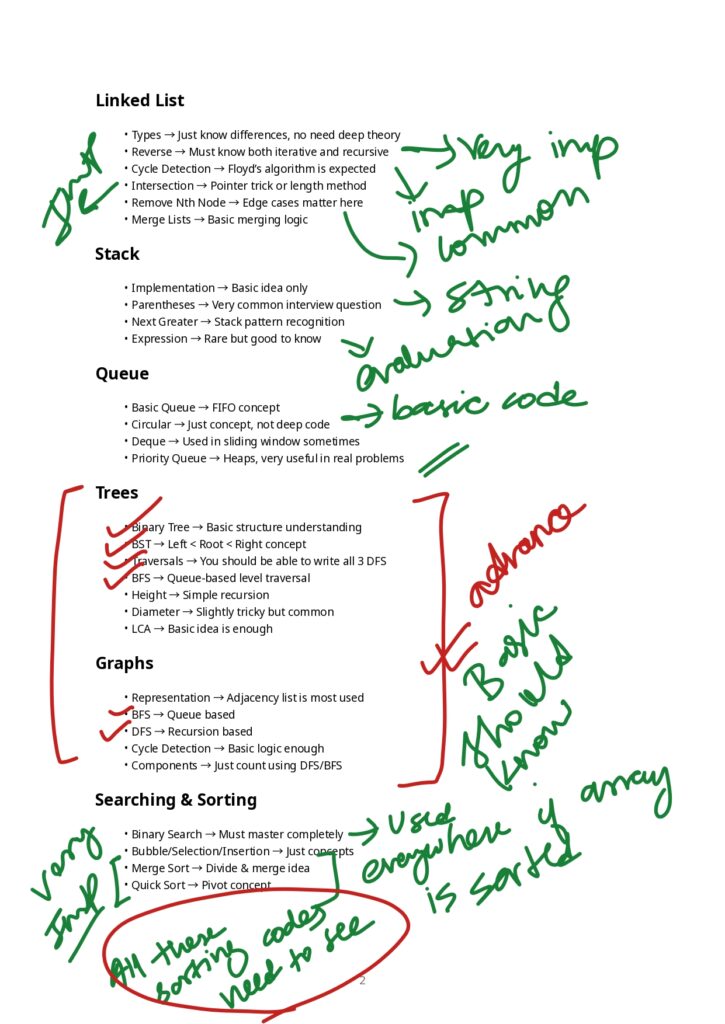 Linked List
• Types → Just know differences, no need deep theory
• Reverse → Must know both iterative and recursive
→ Very imp
• Cycle Detection → Floyd's algorithm is expected
imp
• Intersection → Pointer trick or length method
• Remove Nth Node → Edge cases matter here
common
• Merge Lists → Basic merging logic
Stack
• Implementation → Basic idea only
• Parentheses → Very common interview question
→ string
• Next Greater → Stack pattern recognition
• Expression → Rare but good to know
evaluation
Queue
• Basic Queue → FIFO concept
• Circular → Just concept, not deep code
→ basic code
• Deque → Used in sliding window sometimes
• Priority Queue → Heaps, very useful in real problems
Trees
• Binary Tree → Basic structure understanding
• BST → Left < Root < Right concept
• Traversals → You should be able to write all 3 DFS
• BFS → Queue-based level traversal
• Height → Simple recursion
• Diameter → Slightly tricky but common
• LCA → Basic idea is enough
advance
Basic
should
know
Graphs
• Representation → Adjacency list is most used
• BFS → Queue based
• DFS → Recursion based
• Cycle Detection → Basic logic enough
• Components → Just count using DFS/BFS
Searching & Sorting
• Binary Search → Must master completely
→ Used
everywhere if array
is sorted
• Bubble/Selection/Insertion → Just concepts
• Merge Sort → Divide & merge idea
• Quick Sort → Pivot concept
Very
Imp
All these
sorting codes
need to see
2